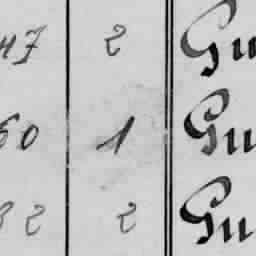 47 2 Gu
60 1 Gu
82 2 Gu